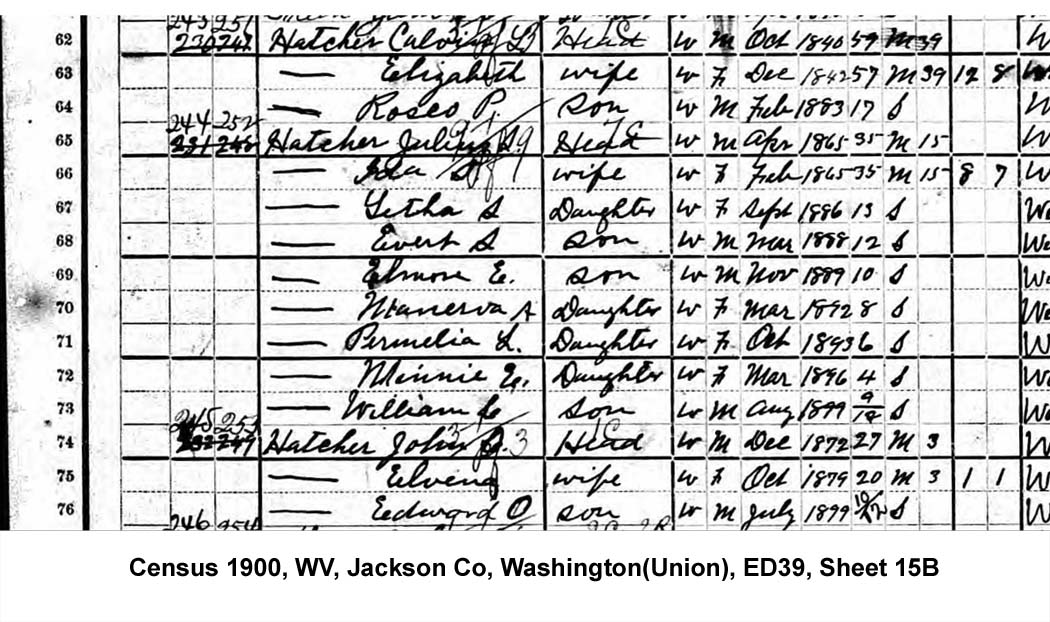 243 251
62 Hatcher Calvin Head W M Oct 1840 59 M 39 W
63 — Elizabeth wife W F Dec 1842 57 M 39 12 8
64 — Rosco P, son W M Feb 1883 17 S W
244 252
65 Hatcher Head W M Apr 1865 35 M 15 W
66 — Ida wife W F Feb 1865 35 M 15 8 7 W
67 — Letha S Daughter W F Sept 1886 13 S W
68 — Evert S son W M Mar 1888 12 S W
69 — Elmore E. son W M Nov 1889 10 S W
70 — Manerva A Daughter W F Mar 1892 8 S W
71 — Permelia L. Daughter W F Oct 1893 6 S W
72 — Minnie E. Daughter W F Mar 1896 4 S W
73 — William son W M Aug 1899 9/12 S W
245 253
74 Hatcher John Head W M Dec 1872 27 M 3 W
75 — Elvena wife W F Oct 1879 20 M 3 1 1 W
76 — Edward O son W M July 1899 10/12 S W
246 254
Census 1900, WV, Jackson Co, Washington(Union), ED39, Sheet 15B